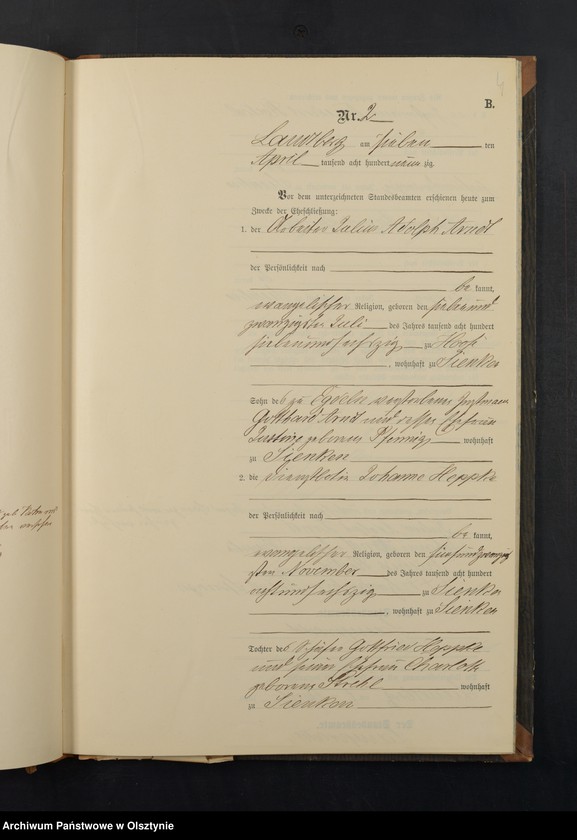 4
B.
Nr. 2
Landsberg am sieben ten
April tausend acht hundert neun zig.
Vor dem unterzeichneten Standesbeamten erschienen heute zum
Zwecke der Eheschließung:
1. der Arbeiter Julius Adolph Arndt
der Persönlichkeit nach
be kannt,
evangelischer Religion, geboren den sieben und
zwanzigsten Juli des Jahres tausend acht hundert
sieben und sechzig zu Hoofe
, wohnhaft zu Sienken
Sohn des zu verstorbenen
Gotthard Arndt und dessen Ehefrau
Justine geborene Pfennig wohnhaft
zu Sienken
2. die Dienstbotin Johanne Heppke
der Persönlichkeit nach
be kannt,
evangelischer Religion, geboren den fünf und zwanzig
sten November des Jahres tausend acht hundert
acht und sechzig zu Sienken
, wohnhaft zu Sienken
Tochter des Gottfried Heppke
und seiner Ehefrau Charlotte
geborene wohnhaft
zu Sienken
Archiwum Państwowe w Olsztynie